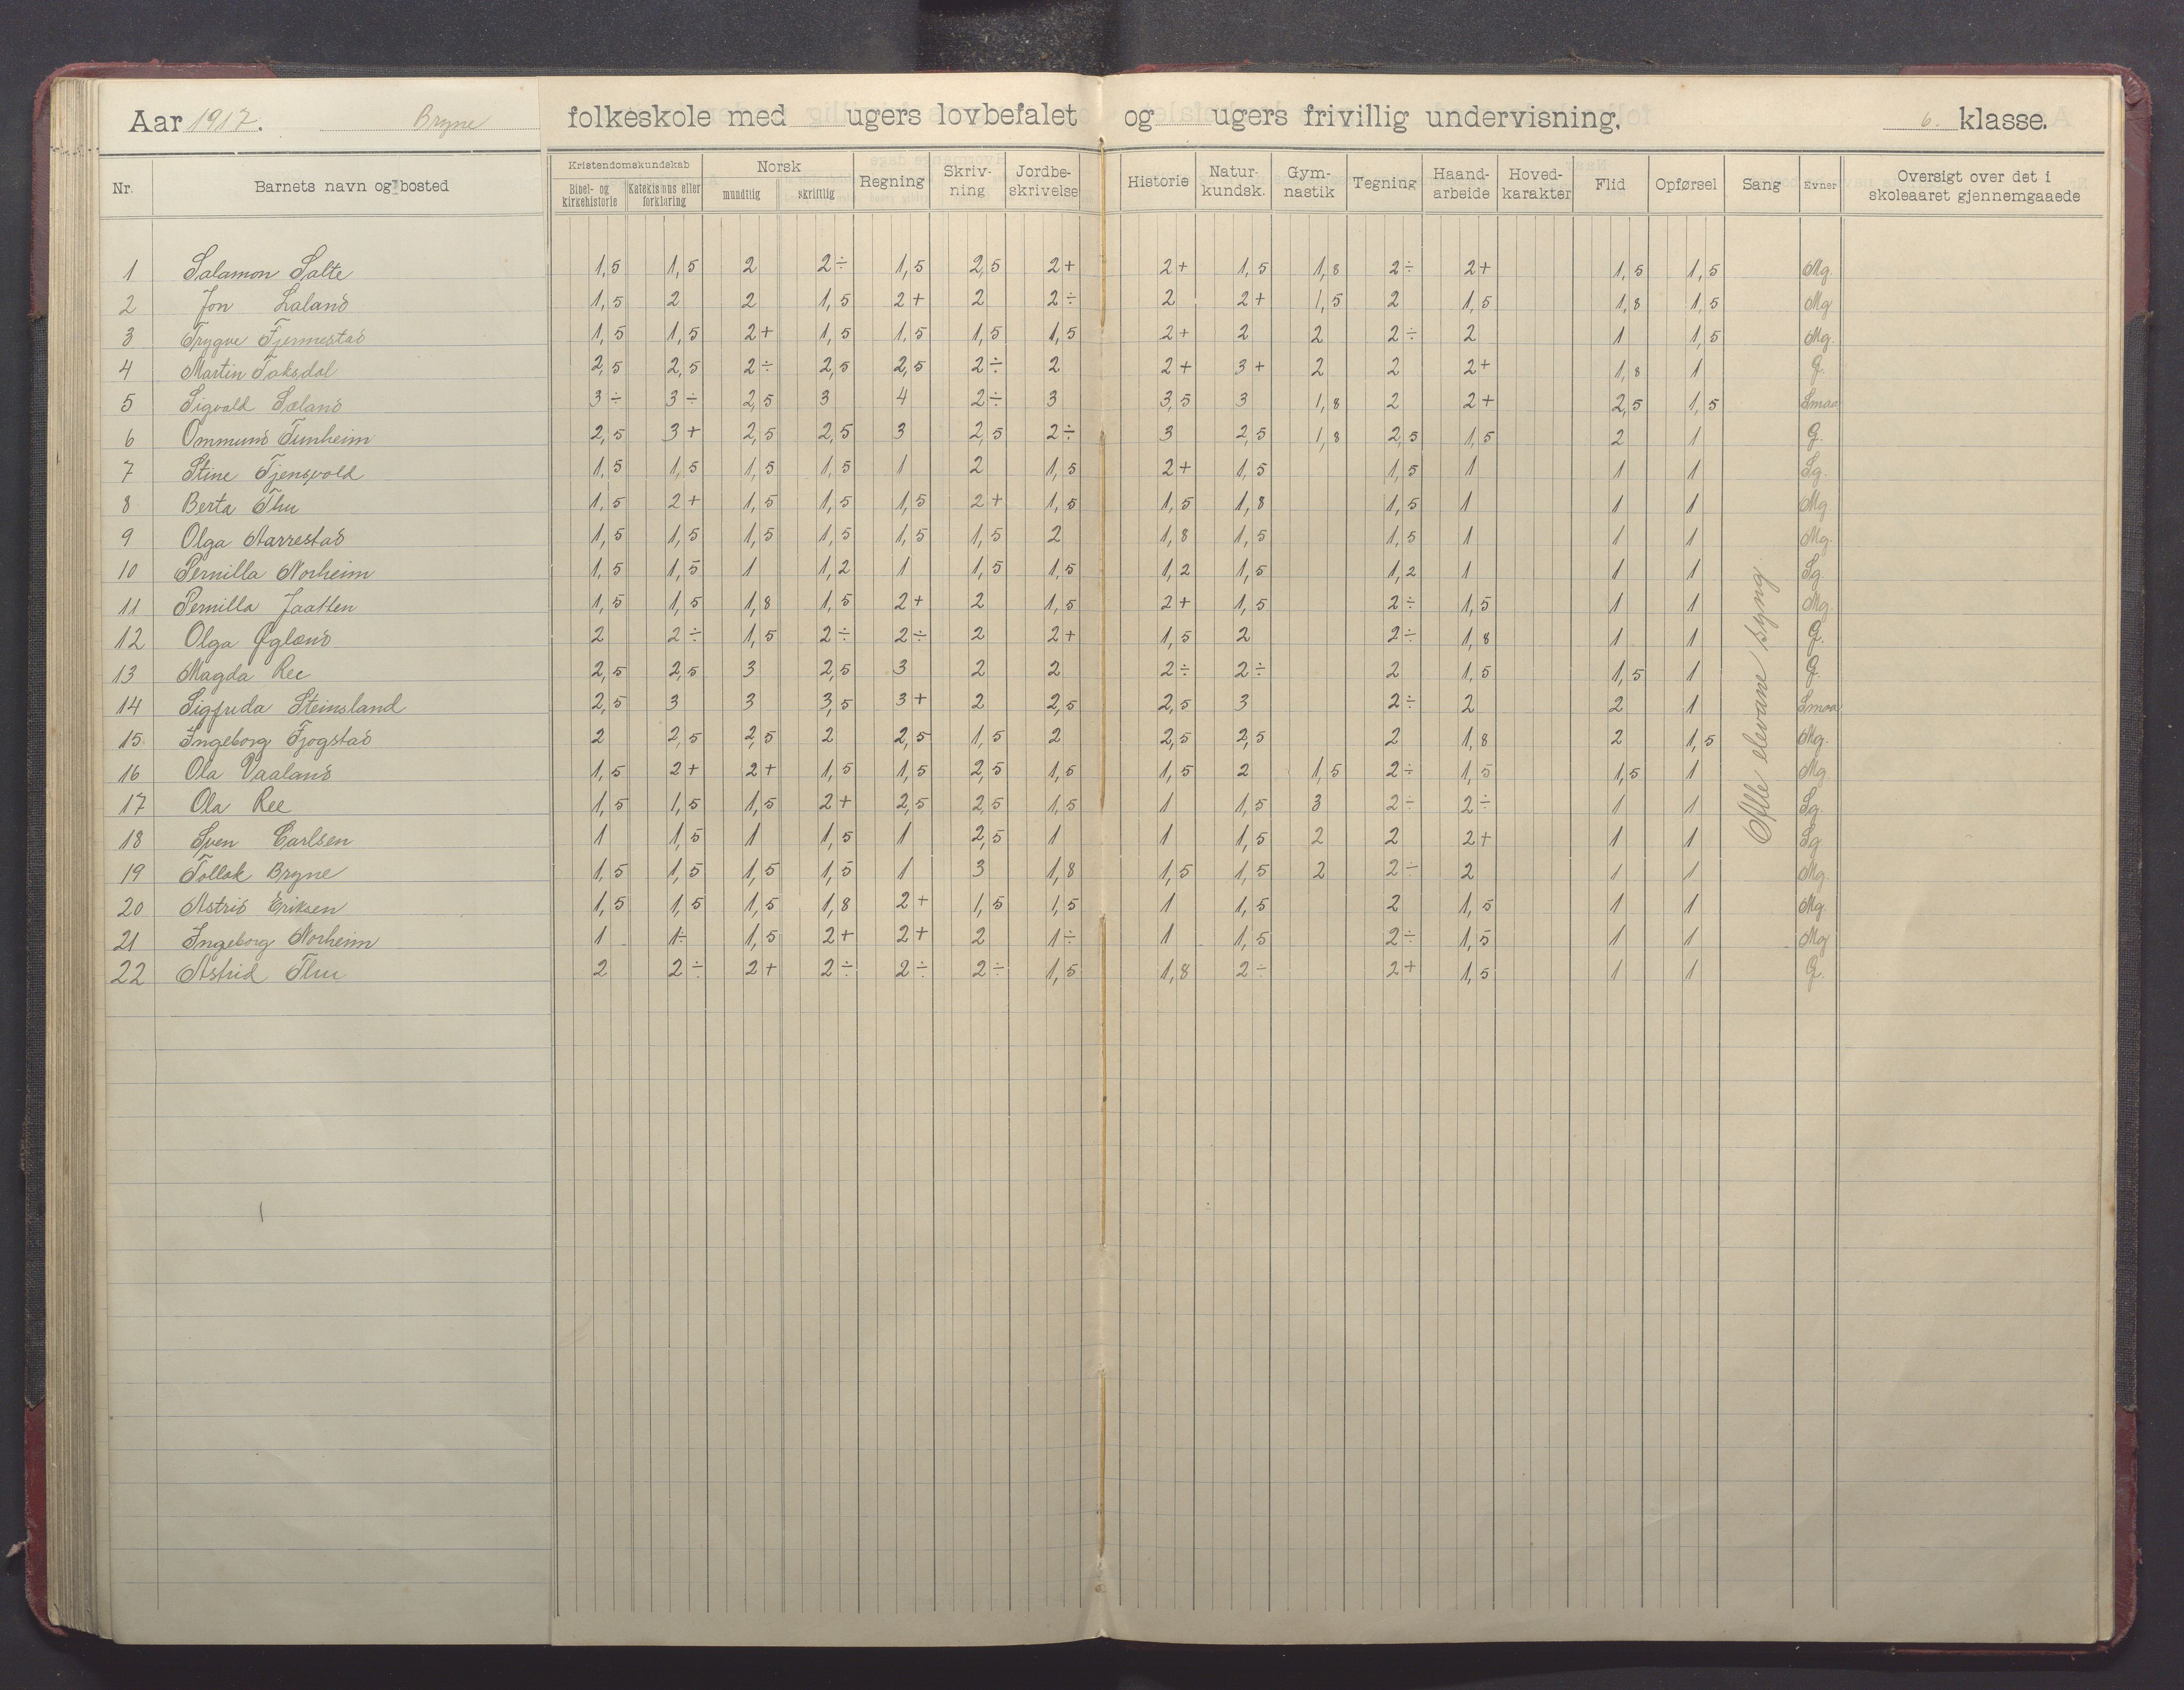 Aar 1917. Bryne folkeskole med ugers lovbefalet og ugers frivillig undervisning, 6. klasse.
Nr. Barnets navn og bosted Kristendomskundskab Bibel- og kirkehistorie Katekismus eller forklaring Norsk mundtlig skriftlig Regning Skriv-ning Jordbe-skrivelse Historie Natur-kundsk. Gym-nastik Tegning Haand-arbeide Hoved-karakter Flid Opførsel Sang Evner Oversigt over det i skoleaaret gjennemgaaede
1 Salamon Salte 1,5 1,5 2 2÷ 1,5 2,5 2+ 2+ 1,5 1,8 2÷ 2+ 1,5 1,5 Mg.
2 Jon Laland 1,5 2 2 1,5 2+ 2 2÷ 2 2+ 1,5 2 1,5 1,8 1,5 Mg
3 Trygve Tjermestad 1,5 1,5 2+ 1,5 1,5 1,5 1,5 2+ 2 2 2÷ 2 1 1,5 Mg.
4 Martin Taksdal 2,5 2,5 2÷ 2,5 2,5 2÷ 2 2+ 3+ 2 2 2+ 1,8 1 G.
5 Sigvald Sæland 3÷ 3÷ 2,5 3 4 2÷ 3 3,5 3 1,8 2 2+ 2,5 1,5 Smaa
6 Ommund Tunheim 2,5 3+ 2,5 2,5 3 2,5 2÷ 3 2,5 1,8 2,5 1,5 2 1 G.
7 Stine Tjensvold 1,5 1,5 1,5 1,5 1 2 1,5 2+ 1,5 1,5 1 1 1 Sg.
8 Berta Thu 1,5 2+ 1,5 1,5 1,5 2+ 1,5 1,5 1,8 1,5 1 1 1 Mg.
9 Olga Aarrestad 1,5 1,5 1,5 1,5 1,5 1,5 2 1,8 1,5 1,5 1 1 1 Mg.
10 Pernilla Norheim 1,5 1,5 1 1,2 1 1,5 1,5 1,2 1,5 1,2 1 1 1 Sg.
11 Pernilla Jaatten 1,5 1,5 1,8 1,5 2+ 2 1,5 2+ 1,5 2÷ 1,5 1 1 Mg.
12 Olga Øgland 2 2÷ 1,5 2÷ 2÷ 2 2+ 1,5 2 2÷ 1,8 1 1 G.
13 Magda Ree 2,5 2,5 3 2,5 3 2 2 2÷ 2÷ 2 1,5 1,5 1 G.
14 Sigfrida Steinsland 2,5 3 3 3,5 3+ 2 2,5 2,5 3 2÷ 2 2 1 Smaa
15 Ingeborg Fjogstad 2 2,5 2,5 2 2,5 1,5 2 2,5 2,5 2 1,8 2 1,5 Mg.
16 Ola Vaaland 1,5 2+ 2+ 1,5 1,5 2,5 1,5 1,5 2 1,5 2÷ 1,5 1,5 1 Mg
17 Ola Ree 1,5 1,5 1,5 2+ 2,5 2,5 1,5 1 1,5 3 2÷ 2÷ 1 1 Sg.
18 Sven Carlsen 1 1,5 1 1,5 1 2,5 1 1 1,5 2 2 2+ 1 1 Sg.
19 Tollak Bryne 1,5 1,5 1,5 1,5 1 3 1,8 1,5 1,5 2 2÷ 2 1 1 Mg.
20 Astrid Eriksen 1,5 1,5 1,5 1,8 2+ 1,5 1,5 1 1,5 2 1,5 1 1 Mg.
21 Ingeborg Norheim 1 1÷ 1,5 2+ 2+ 2 1÷ 1 1,5 2÷ 1,5 1 1 Mg
22 Astrid Thu 2 2÷ 2+ 2÷ 2÷ 2÷ 1,5 1,8 2÷ 2+ 1,5 1 1 G.
Alle elevane syng